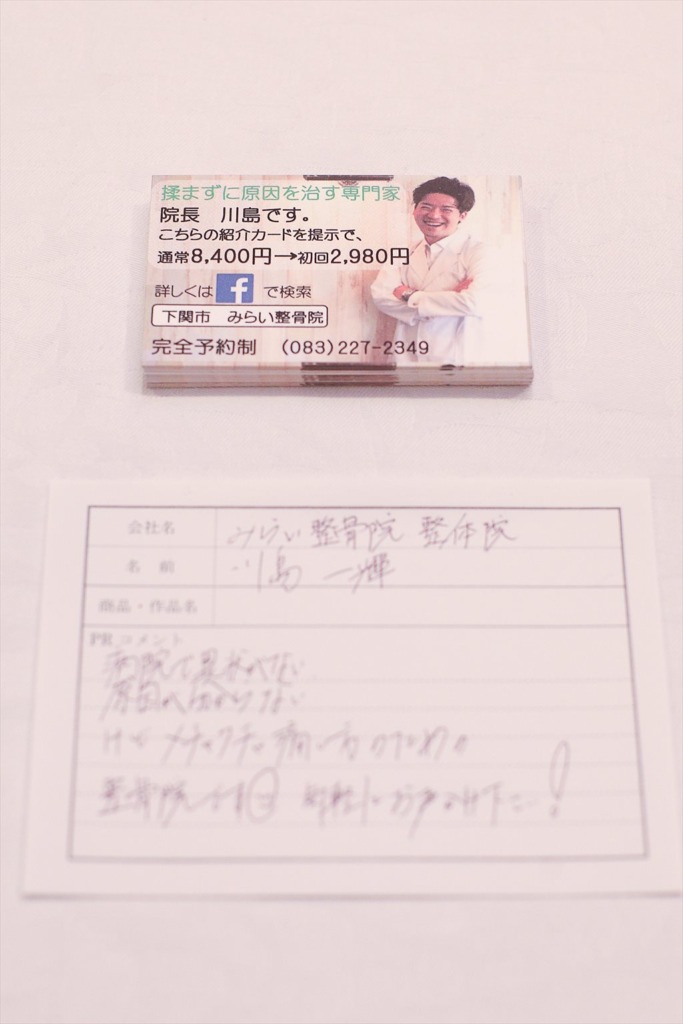 揉まずに原因を治す専門家
院長 川島です。
こちらの紹介カードを提示で、
通常8,400円→初回2,980円
詳しくは f で検索
下関市 みらい整骨院
完全予約制 (083)227-2349
会社名 みらい整骨院 整体院
名前 川島 一輝
商品・作品名
PRコメント
病院で異常がない
原因が分からない
けどメチャクチャ痛い方のための
整骨院です